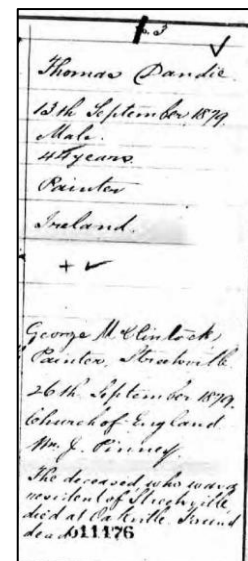 No. 3
Thomas Dandie
13th September 1879
Male.
44 years
Painter
Ireland.
George McClintock,
Painter, Streetsville
26th September 1879.
Church of England
Wm. J. Pinney
The deceased who was a
resident of Streetsville
died at Oakville. Found
dead 011176